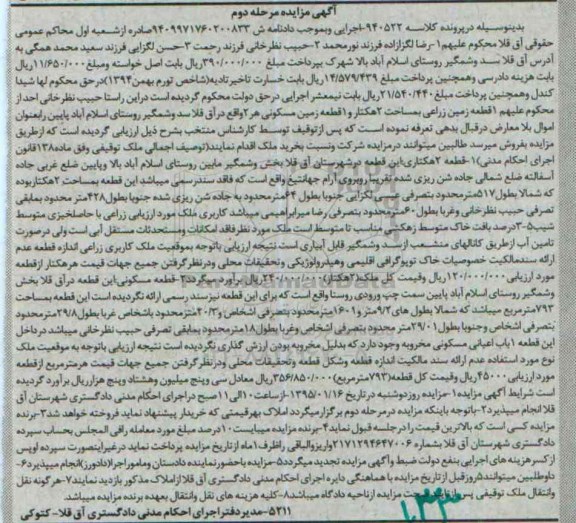 آگهی مزایده مرحله دوم
بدینوسیله درپرونده کلاسه ۹۴۰۵۲۲-اجرایی وبموجب دادنامه ش ۹۴۰۹۹۷۱۷۶۰۲۰۰۸۳۳صادره ازشعبه اول محاکم عمومی
حقوقی آق قلا محکوم علیهم ۱-رضا لگزازاده فرزند نورمحمد ۲-حبیب نظرخانی فرزند رحمت ۳-حسن لگزایی فرزند سعید محمد همگی به
آدرس آق قلا سد وشمگیر روستای اسلام آباد بالا شهرک بپرداخت مبلغ ۳۹۰/۰۰۰/۰۰۰ریال بابت اصل خواسته ومبلغ۱۱/۶۵۰/۰۰۰ریال
بابت هزینه دادرسی وهمچنین پرداخت مبلغ ۱۴/۵۷۹/۴۳۹ریال بابت خسارت تاخیرتادیه(شاخص تورم بهمن۱۳۹۴)درحق محکوم لها شیدا
کندل وهمچنین پرداخت مبلغ ۲۱/۵۴۰/۴۴۰ریال بابت نیمعشر اجرایی درحق دولت محکوم گردیده است دراین راستا حبیب نظرخانی احد از
محکوم علیهم ۱قطعه زمین زراعی بمساحت ۲هکتار و۱قطعه زمین مسکونی هر۲واقع درآق قلا سد وشمگیر روستای اسلام آباد پایین رابعنوان
اموال بلا معارض درقبال بدهی تعرفه نموده است که پس ازتوقیف توسط کارشناس منتخب بشرح ذیل ارزیابی گردیده است که ازطریق
مزایده بفروش میرسد طالبین میتوانند درمزایده شرکت ونسبت بخرید ملک اقدام نمایند(توصیف اجمالی ملک توقیفی وفق ماده۱۳۸قانون
اجرای احکام مدنی)۱-قطعه ۲هکتاری:این قطعه درشهرستان آق قلا بخش وشمگیر مابین روستای اسلام آباد بالا وپایین ضلع غربی جاده
آسفالته ضلع شمالی جاده شن ریزی شده تقریبا روبروی آرام جهانتیغ واقع است که فاقد سندرسمی میباشد این قطعه بمساحت ۲هکتاربوده
که شمالا بطول۵۱۷مترمحدود بتصرفی عیسی لگزایی جنوبا بطول ۶۴مترمحدود به جاده شن ریزی شده جنوبا بطول۴۲۸متر محدود بمابقی
تصرفی حبیب نظرخانی وغربا بطول ۶۰مترمحدود بتصرفی رضا میرابراهیمی میباشد کاربری ملک مورد ارزیابی زراعی با حاصلخیزی متوسط
شیب۵-۳درصد بافت خاک متوسط زهکشی مناسب تا متوسط است ملک مورد نظر فاقد امکانات ومستحدثات مستقل آبی است ولی درصورت
تامین آب ازطریق کانالهای منشعب ازسد وشمگیر قابل آبیاری است نتیجه ارزیابی باتوجه بموقعیت ملک کاربری زراعی اندازه قطعه عدم
ارائه سندمالکیت خصوصیات خاک توپوگرافی اقلیمی وهیدرولوژیکی وتحقیقات محلی ودرنظرگرفتن جمیع جهات قیمت هرهکتار ازقطعه
مورد ارزیابی۱۲۰/۰۰۰/۰۰۰ریال وقیمت کل ملک(۲هکتار)۲۴۰/۰۰۰/۰۰۰ریال برآورد میگردد۲-قطعه مسکونی:این قطعه درآق قلا بخش
وشمگیر روستای اسلام آباد پایین سمت چپ ورودی روستا واقع است که برای این قطعه نیزسند رسمی ارائه نگردیده است این قطعه بمساحت
۷۹۳مترمربع میباشد که شمالا بطول های۹/۲متر و۱۶۰۱مترمحدود بتصرفی اشخاص و۲۰/۳مترمحدود باشخاص غربا بطول۲۹/۸مترمحدود
بتصرفی اشخاص وجنوبا بطول۲۹/۰۱متر محدود بتصرفی اشخاص وغربا بطول۱۸مترمحدود بمابقی تصرفی حبیب نظرخانی میباشد درداخل
این قطعه ۱باب اعیانی مسکونی مخروبه وجود دارد که بدلیل مخروبه بودن ارزش گذاری نگردیده است نتیجه ارزیابی باتوجه به موقعیت ملک
نوع مورد استفاده عدم ارائه سند مالکیت اندازه قطعه وشکل قطعه وتحقیقات محلی ودرنظرگرفتن جمیع جهات قیمت هرمترمربع ازقطعه
مورد ارزیابی۴۵۰۰۰ریال وقیمت کل قطعه(۷۹۳مترمربع)۳۵۶/۸۵۰/۰۰۰ریال معادل سی وپنج میلیون وهشتاد وپنج هزارریال برآورد گردیده
است شرایط آگهی مزایده ۱-مزایده روزدوشنبه درتاریخ ۱۳۹۵/۰۱/۱۶-ازساعت۱۰الی۱۱صبح دراجرای احکام مدنی دادگستری شهرستان آق
قلا انجام میپذیرد۲-باتوجه باینکه مزایده درمرحله دوم برگزارمیگردد املاک بهرقیمتی که خریدار پیشنهاد نماید فروخته خواهد شد۳-برنده
مزایده کسی است که بالاترین قیمت را درجلسه قبول نماید۴-برنده مزایده میبایست ۱۰درصد مبلغ مورد معامله رافی المجلس بحساب سپرده
دادگستری شهرستان آق قلا بشماره ۲۱۷۱۲۹۴۶۴۷۰۰۶واریزوالباقی راظرف۱ماه ازتاریخ مزایده پرداخت نماید درغیراینصورت سپرده اوپس
ازکسرهزینه های اجرایی بنفع دولت ضبط وآگهی مزایده تجدید میگردد۵-مزایده باحضورنماینده دادستان ومامور اجرا(دادورز)انجام میپذیرد۶-
داوطلبین میتوانند۵روزقبل ازتاریخ مزایده با هماهنگی دایره اجرای احکام مدنی دادگستری آق قلا ازاملاک مذکور بازدید نمایند۷-هرگونه نقل
وانتقال ملک توقیفی پس از صحت مزایده ازناحیه دادگاه میباشد۸-کلیه هزینه های نقل وانتقال بعهده برنده مزایده میباشد.
۵۲۱۱-مدیر دفتر اجرای احکام مدنی دادگستری آق قلا- کتوکی